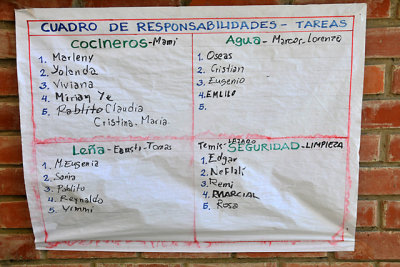 CUADRO DE RESPONSABILIDADES - TAREAS
COCINEROS - Mami
1. Marleny
2. Yolanda
3. Viviana
4. Miriam Ye
5. Pablito Claudia
Cristina. Maria.
Agua - Marcos-Lorenzo
1. Oseas
2. Cristian
3. Eugenio
4. EMLILO
5.
Leña - Fausto - Tomas
1. M. Eugenia
2. Sonia
3. Pablito
4. Reynaldo
5. Vimmi
Temis- SEGURIDAD - LIMPIEZA
1. Edgar
2. Neftali
3. Remi
4. MARCIAL
5. Rosa